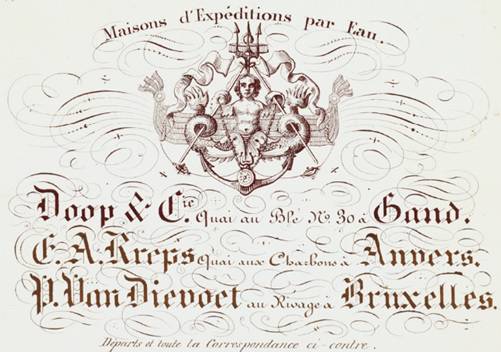 Maisons d'Expéditions par Eau.
Doop & Cie. Quai au Blé No. 30 à Gand.
E. A. Kreps Quai aux Charbons à Anvers.
P. Van Dievoet au Rivage à Bruxelles.
Départs et toute la Correspondance ci-contre.